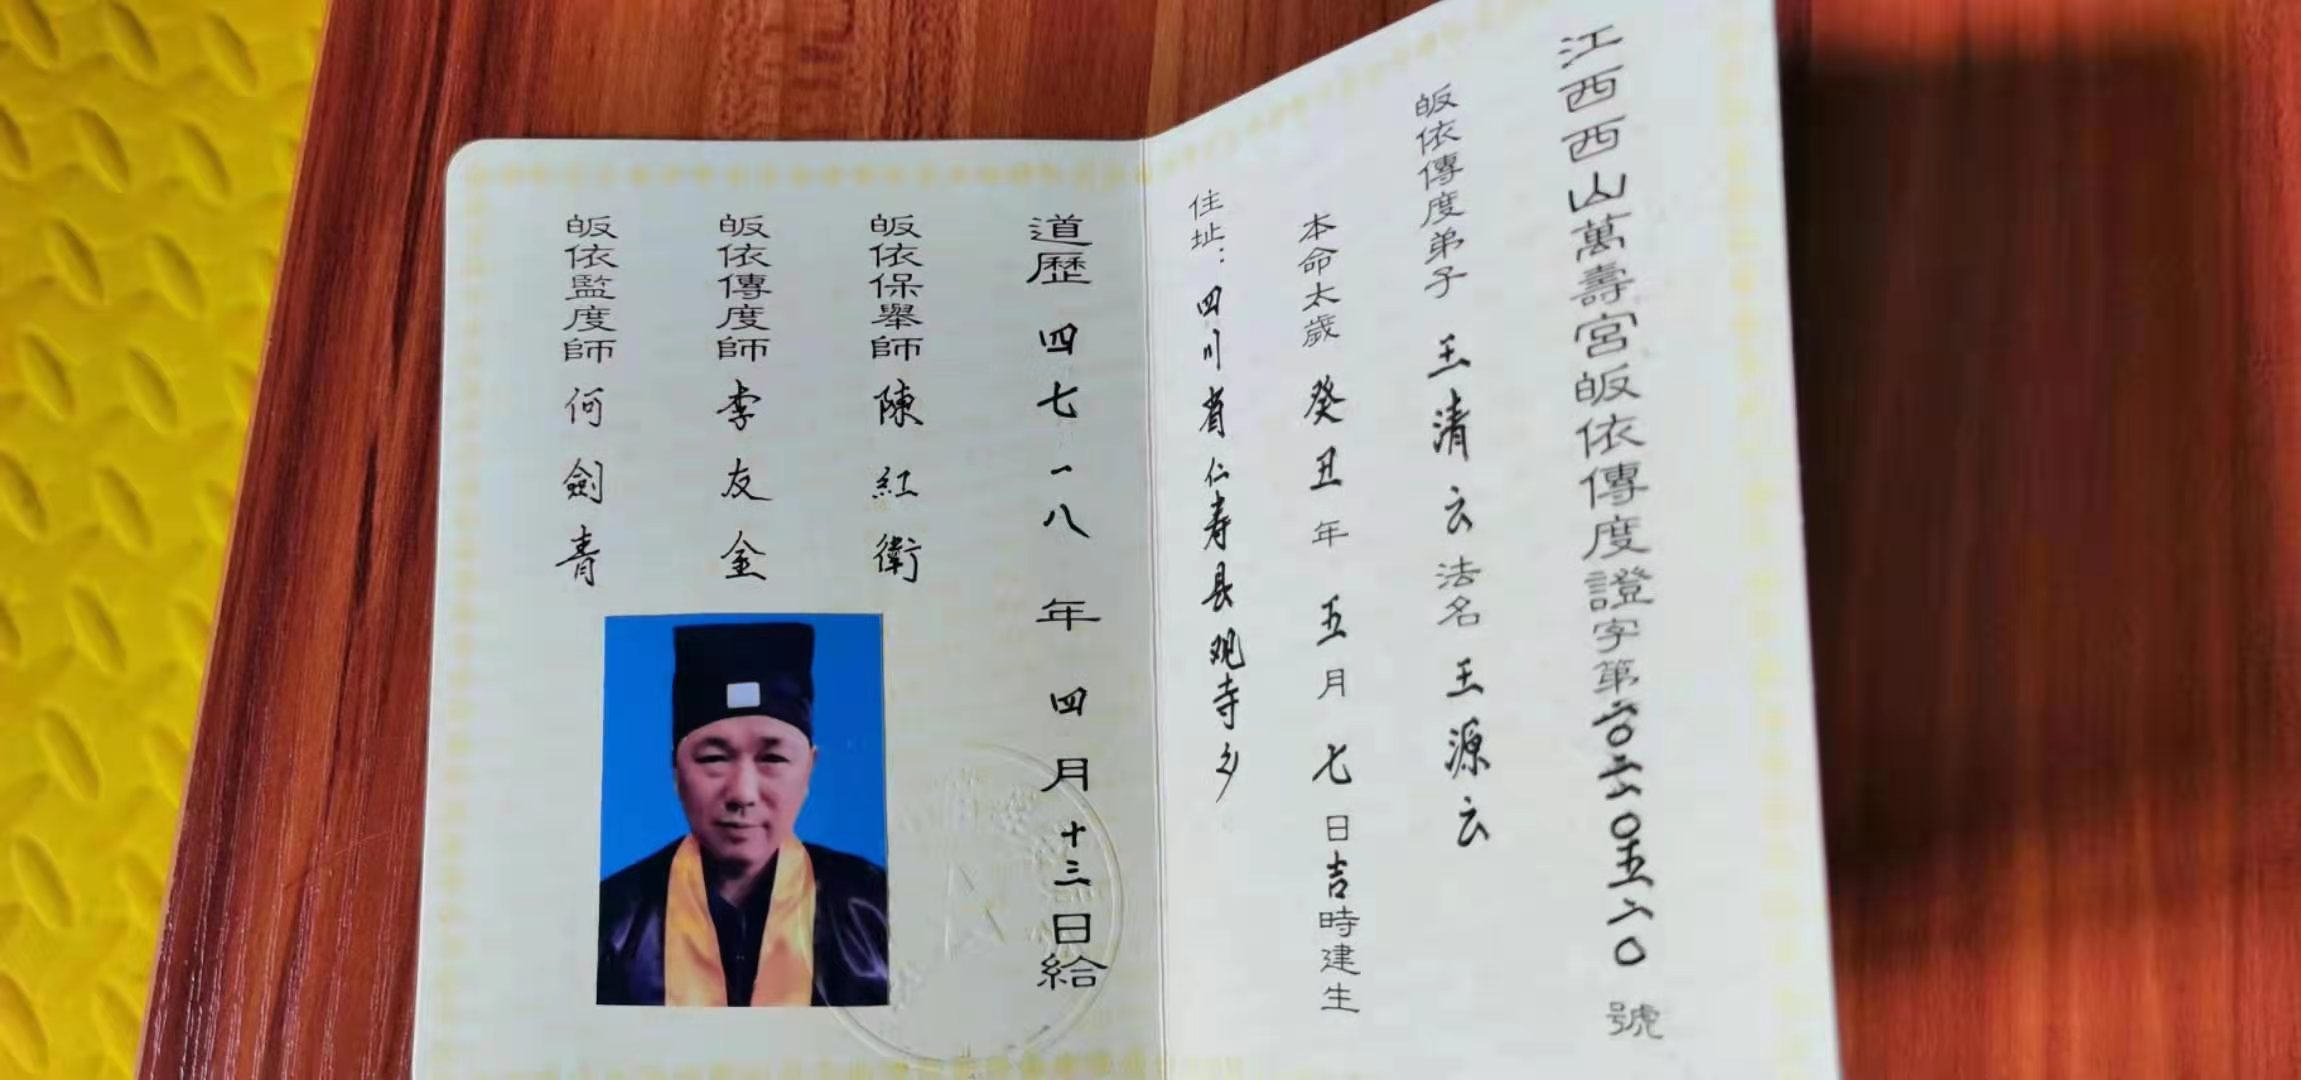 江西西山萬壽宮皈依傳度證字第六〇二二〇五六〇號
皈依傳度弟子 王清云 法名 王源云
本命太歲 癸丑年 五月 七日吉時建生
住址：四川省仁寿县观寺乡
道歷 四七一八 年 四月十三日給
皈依保舉師 陳紅衛
皈依傳度師 李友金
皈依監度師 何劍青